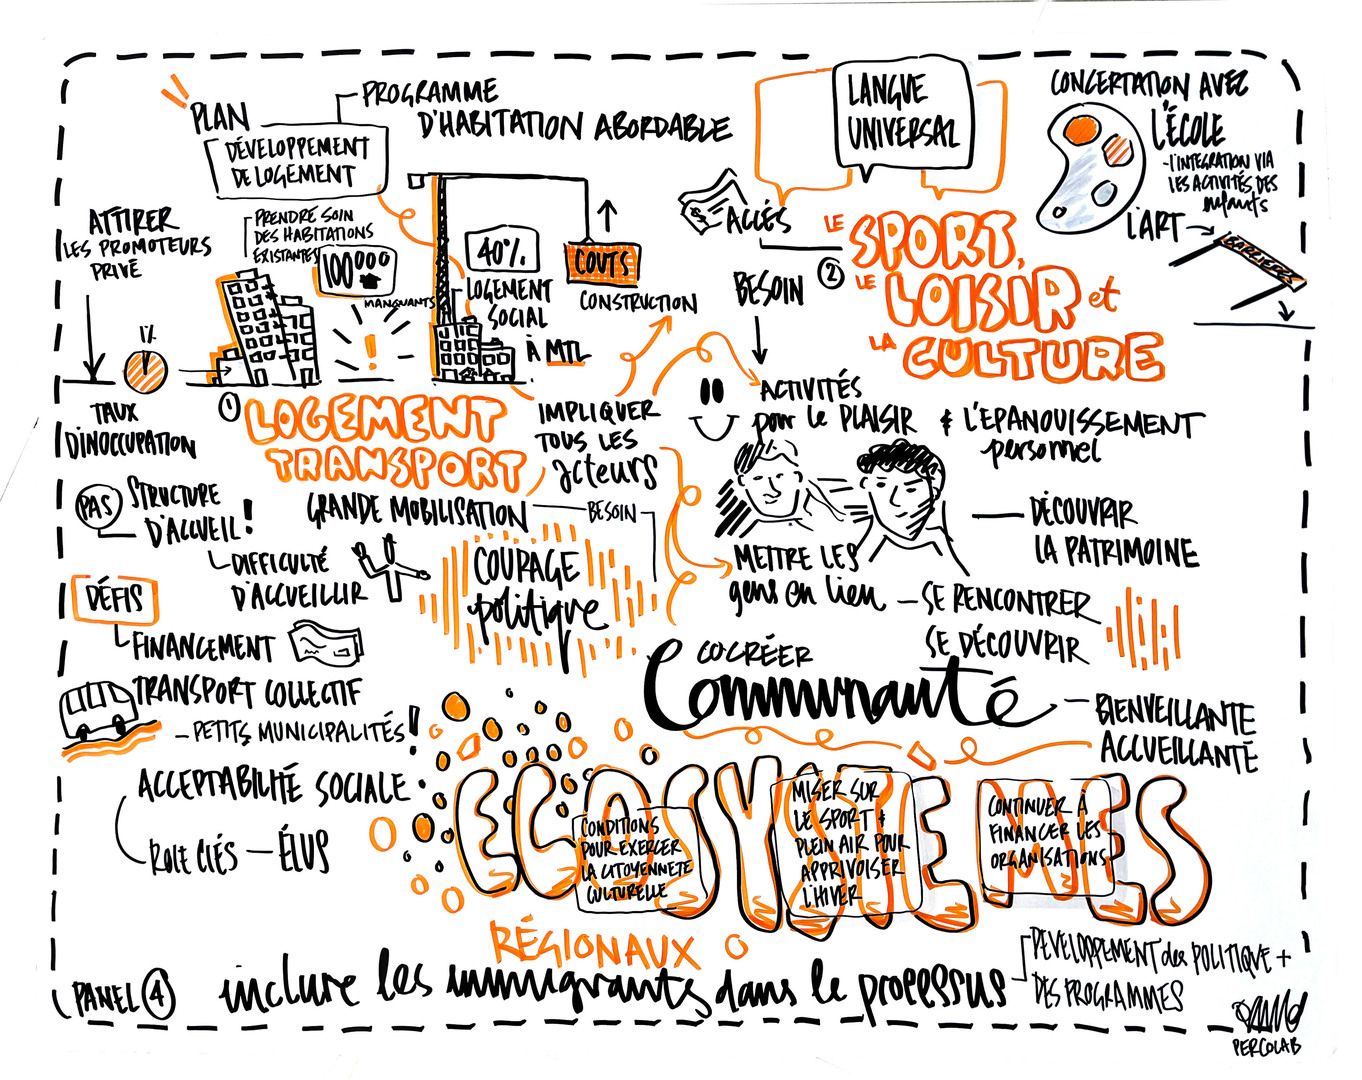 PLAN
DÉVELOPPEMENT
DE LOGEMENT
PROGRAMME
D'HABITATION ABORDABLE
ATTIRER
LES PROMOTEURS
PRIVÉ
PRENDRE SOIN
DES HABITATIONS
EXISTANTES
100000
MANQUANTS
40%
LOGEMENT
SOCIAL
À MTL
COUTS
CONSTRUCTION
1%
TAUX
D'INOCCUPATION
① LOGEMENT
TRANSPORT
IMPLIQUER
TOUS LES
acteurs
PAS STRUCTURE
D'ACCUEIL!
DIFFICULTÉ
D'ACCUEILLIR
GRANDE MOBILISATION
BESOIN
COURAGE
politique
DÉFIS
FINANCEMENT
TRANSPORT COLLECTIF
- PETITS MUNICIPALITÉS!
ACCEPTABILITÉ SOCIALE
ROLE CLÉS - ÉLUS
LANGUE
UNIVERSAL
ACCÈS
BESOIN
② LE SPORT,
LE LOISIR et
LA CULTURE
CONCERTATION AVEC
L'ÉCOLE
- L'INTEGRATION VIA
LES ACTIVITÉS DES
enfants
L'ART
BARRIERES
ACTIVITÉS
pour le PLAISIR & L'EPANOUISSEMENT
personnel
DÉCOUVRIR
LA PATRIMOINE
METTRE LES
gens en lien
- SE RENCONTRER
SE DÉCOUVRIR
COCRÉER
Communauté
- BIENVEILLANTE
ACCUEILLANTE
ECOSYSTEMES
CONDITIONS
POUR EXERCER
LA CITOYENNETÉ
CULTURELLE
MISER SUR
LE SPORT &
PLEIN AIR POUR
APPRIVOISER
L'HIVER
CONTINUER À
FINANCER LES
ORGANISATIONS
RÉGIONAUX
inclure les immigrants dans le processus
DEVELOPPEMENT des POLITIQUE +
DES PROGRAMMES
PANEL ④
PERCOLAB